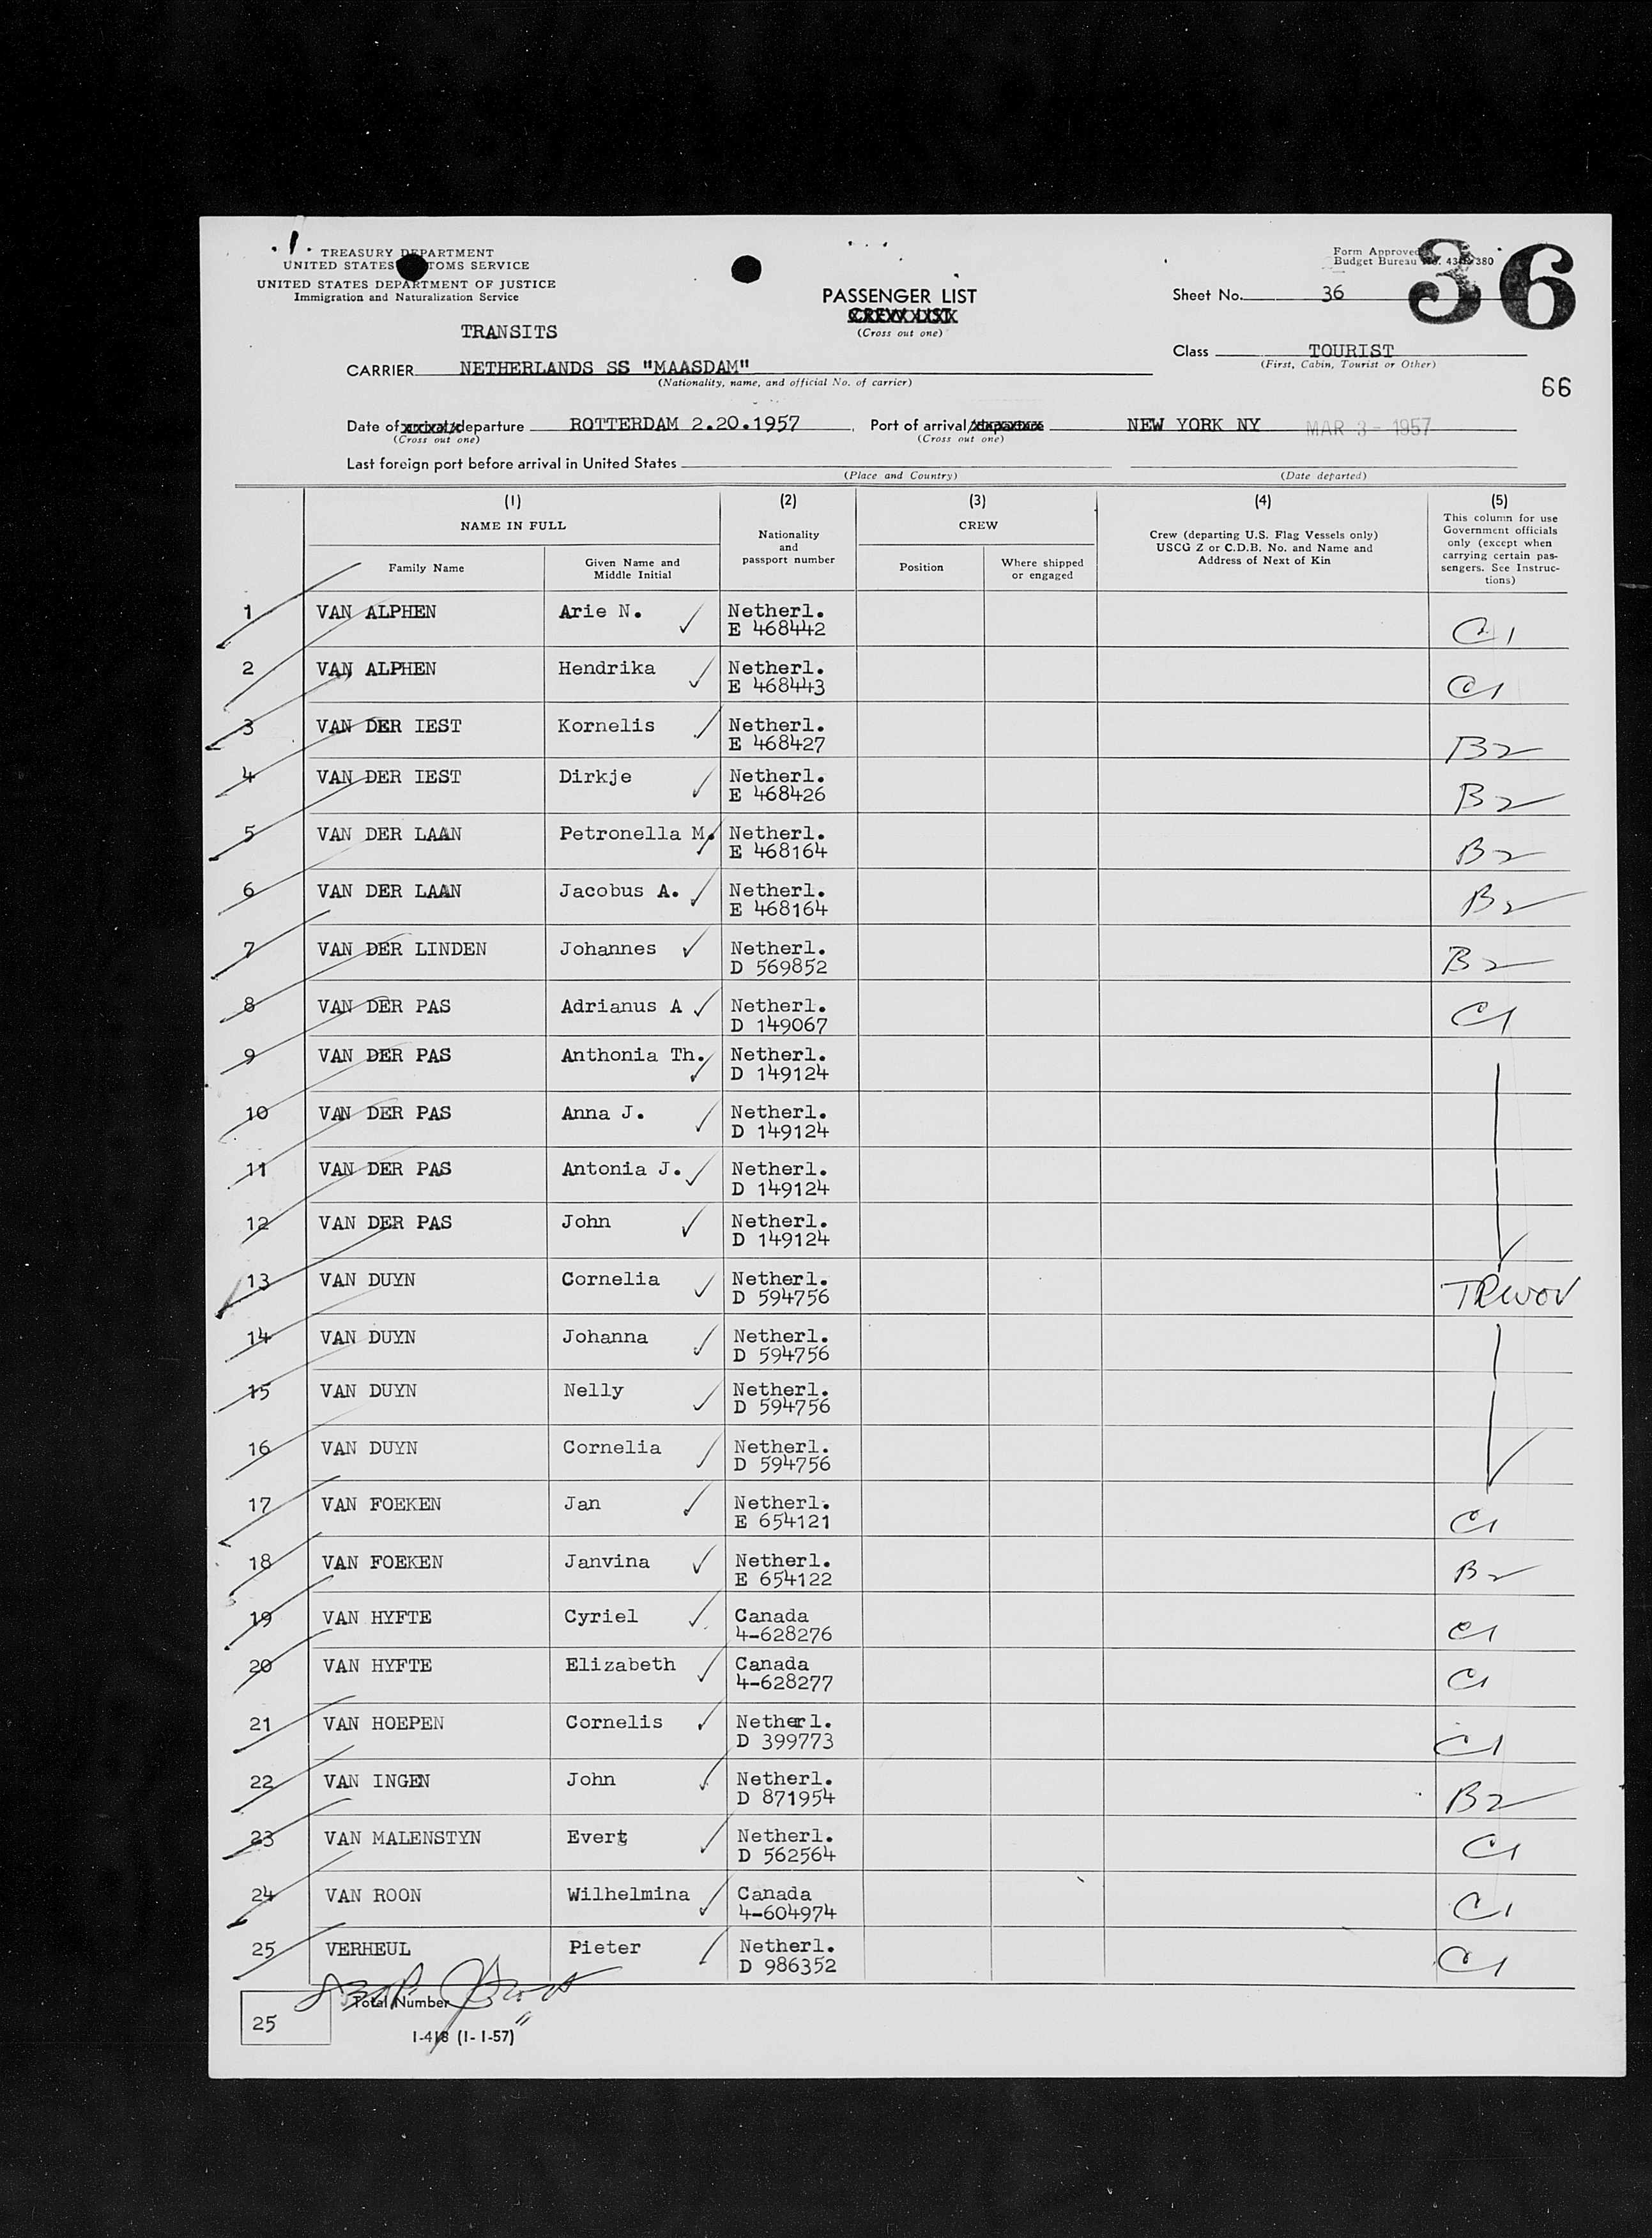 TREASURY DEPARTMENT
UNITED STATES CUSTOMS SERVICE
UNITED STATES DEPARTMENT OF JUSTICE
Immigration and Naturalization Service
Form Approved
Budget Bureau No. 43-R380
36
PASSENGER LIST
CREW LIST
(Cross out one)
Sheet No. 36
TRANSITS
Class TOURIST
(First, Cabin, Tourist or Other)
CARRIER NETHERLANDS SS "MAASDAM"
(Nationality, name, and official No. of carrier)
66
Date of arrival/departure ROTTERDAM 2.20.1957, Port of arrival/departure NEW YORK NY MAR 3 - 1957
(Cross out one) (Cross out one)
Last foreign port before arrival in United States
(Place and Country) (Date departed)
(1) (2) (3) (4) (5)
NAME IN FULL
Family Name
Given Name and Middle Initial
Nationality and passport number
CREW
Position
Where shipped or engaged
Crew (departing U.S. Flag Vessels only)
USCG Z or C.D.B. No. and Name and
Address of Next of Kin
This column for use
Government officials
only (except when
carrying certain pas-
sengers. See Instruc-
tions)
1 VAN ALPHEN Arie N. Netherl. E 468442 C1
2 VAN ALPHEN Hendrika Netherl. E 468443 C1
3 VAN DER IEST Kornelis Netherl. E 468427 B2
4 VAN DER IEST Dirkje Netherl. E 468426 B2
5 VAN DER LAAN Petronella M. Netherl. E 468164 B2
6 VAN DER LAAN Jacobus A. Netherl. E 468164 B2
7 VAN DER LINDEN Johannes Netherl. D 569852 B2
8 VAN DER PAS Adrianus A Netherl. D 149067 C1
9 VAN DER PAS Anthonia Th. Netherl. D 149124
10 VAN DER PAS Anna J. Netherl. D 149124
11 VAN DER PAS Antonia J. Netherl. D 149124
12 VAN DER PAS John Netherl. D 149124
13 VAN DUYN Cornelia Netherl. D 594756 TRWOV
14 VAN DUYN Johanna Netherl. D 594756
15 VAN DUYN Nelly Netherl. D 594756
16 VAN DUYN Cornelia Netherl. D 594756
17 VAN FOEKEN Jan Netherl. E 654121 C1
18 VAN FOEKEN Janvina Netherl. E 654122 B2
19 VAN HYFTE Cyriel Canada 4-628276 C1
20 VAN HYFTE Elizabeth Canada 4-628277 C1
21 VAN HOEPEN Cornelis Netherl. D 399773 C1
22 VAN INGEN John Netherl. D 871954 B2
23 VAN MALENSTYN Evert Netherl. D 562564 C1
24 VAN ROON Wilhelmina Canada 4-604974 C1
25 VERHEUL Pieter Netherl. D 986352 C1
25 Total Number
I-418 (1-1-57)